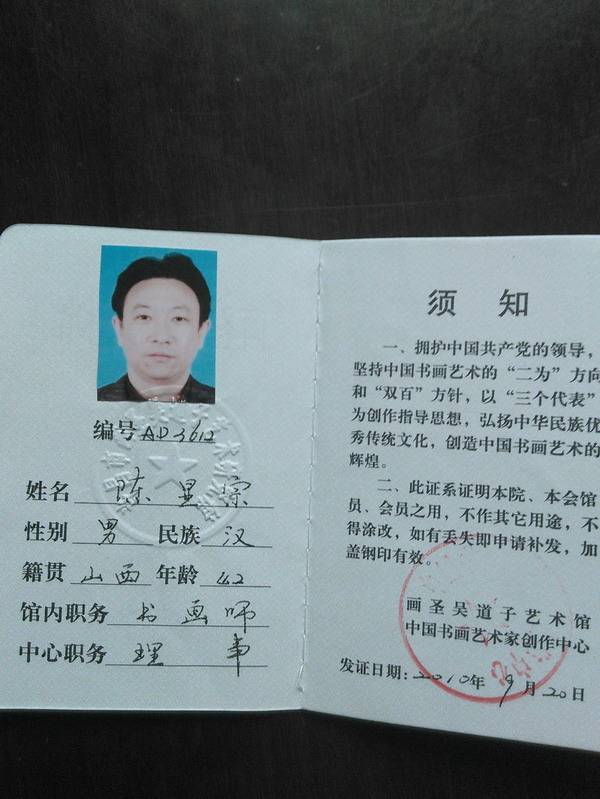 编号AD3612
姓名 陈呈宗
性别 男 民族 汉
籍贯 山西 年龄 42
馆内职务 书画师
中心职务 理事
须 知
一、拥护中国共产党的领导,
坚持中国书画艺术的“二为”方向
和“双百”方针，以“三个代表”
为创作指导思想，弘扬中华民族优
秀传统文化，创造中国书画艺术的
辉煌。
二、此证系证明本院、本会馆
员、会员之用，不作其它用途，不
得涂改，如有丢失即申请补发，加
盖钢印有效。
画圣吴道子艺术馆
中国书画艺术家创作中心
发证日期：2010年 9月20日